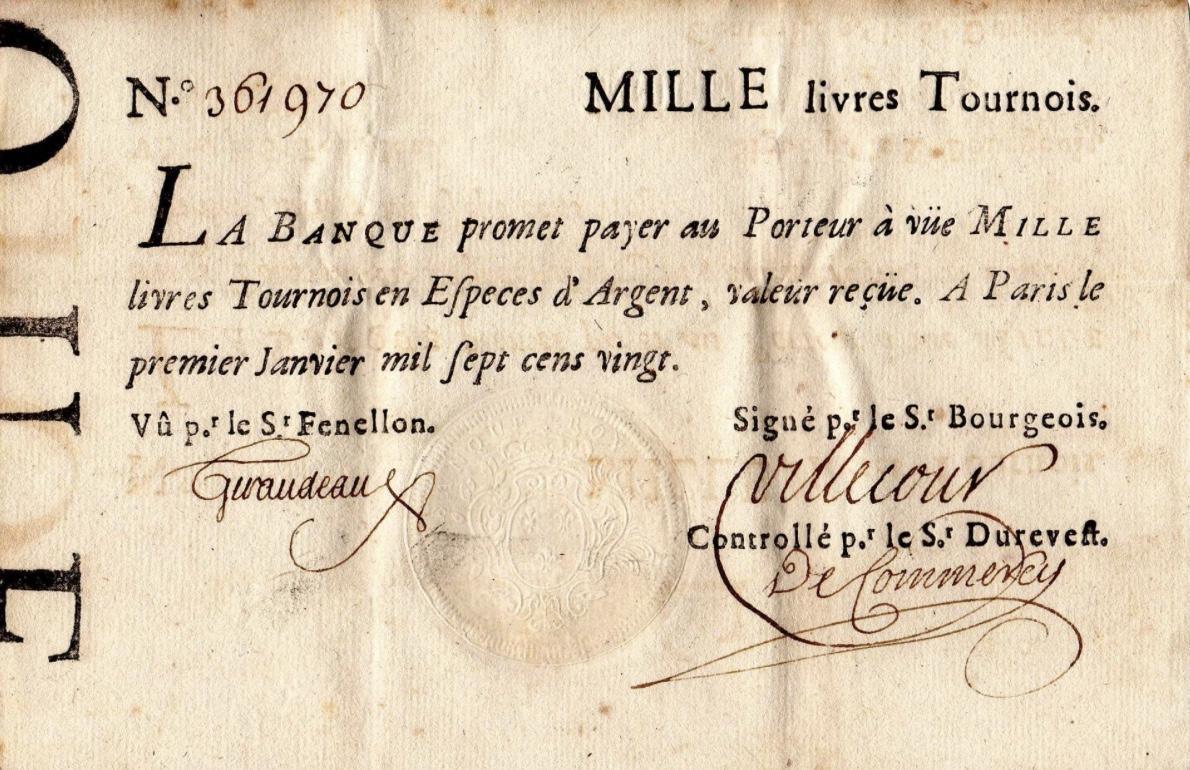 N.º 361970 MILLE livres Tournois.
LA BANQUE promet payer au Porteur à vüe MILLE
livres Tournois en Eſpeces d'Argent, valeur reçüe. A Paris le
premier Janvier mil ſept cens vingt.
Vû p.r le S.r Fenellon. Signé p.r le S.r Bourgeois.
Giraudeau Villecour
Controllé p.r le S.r Dureveſt.
De Commercy